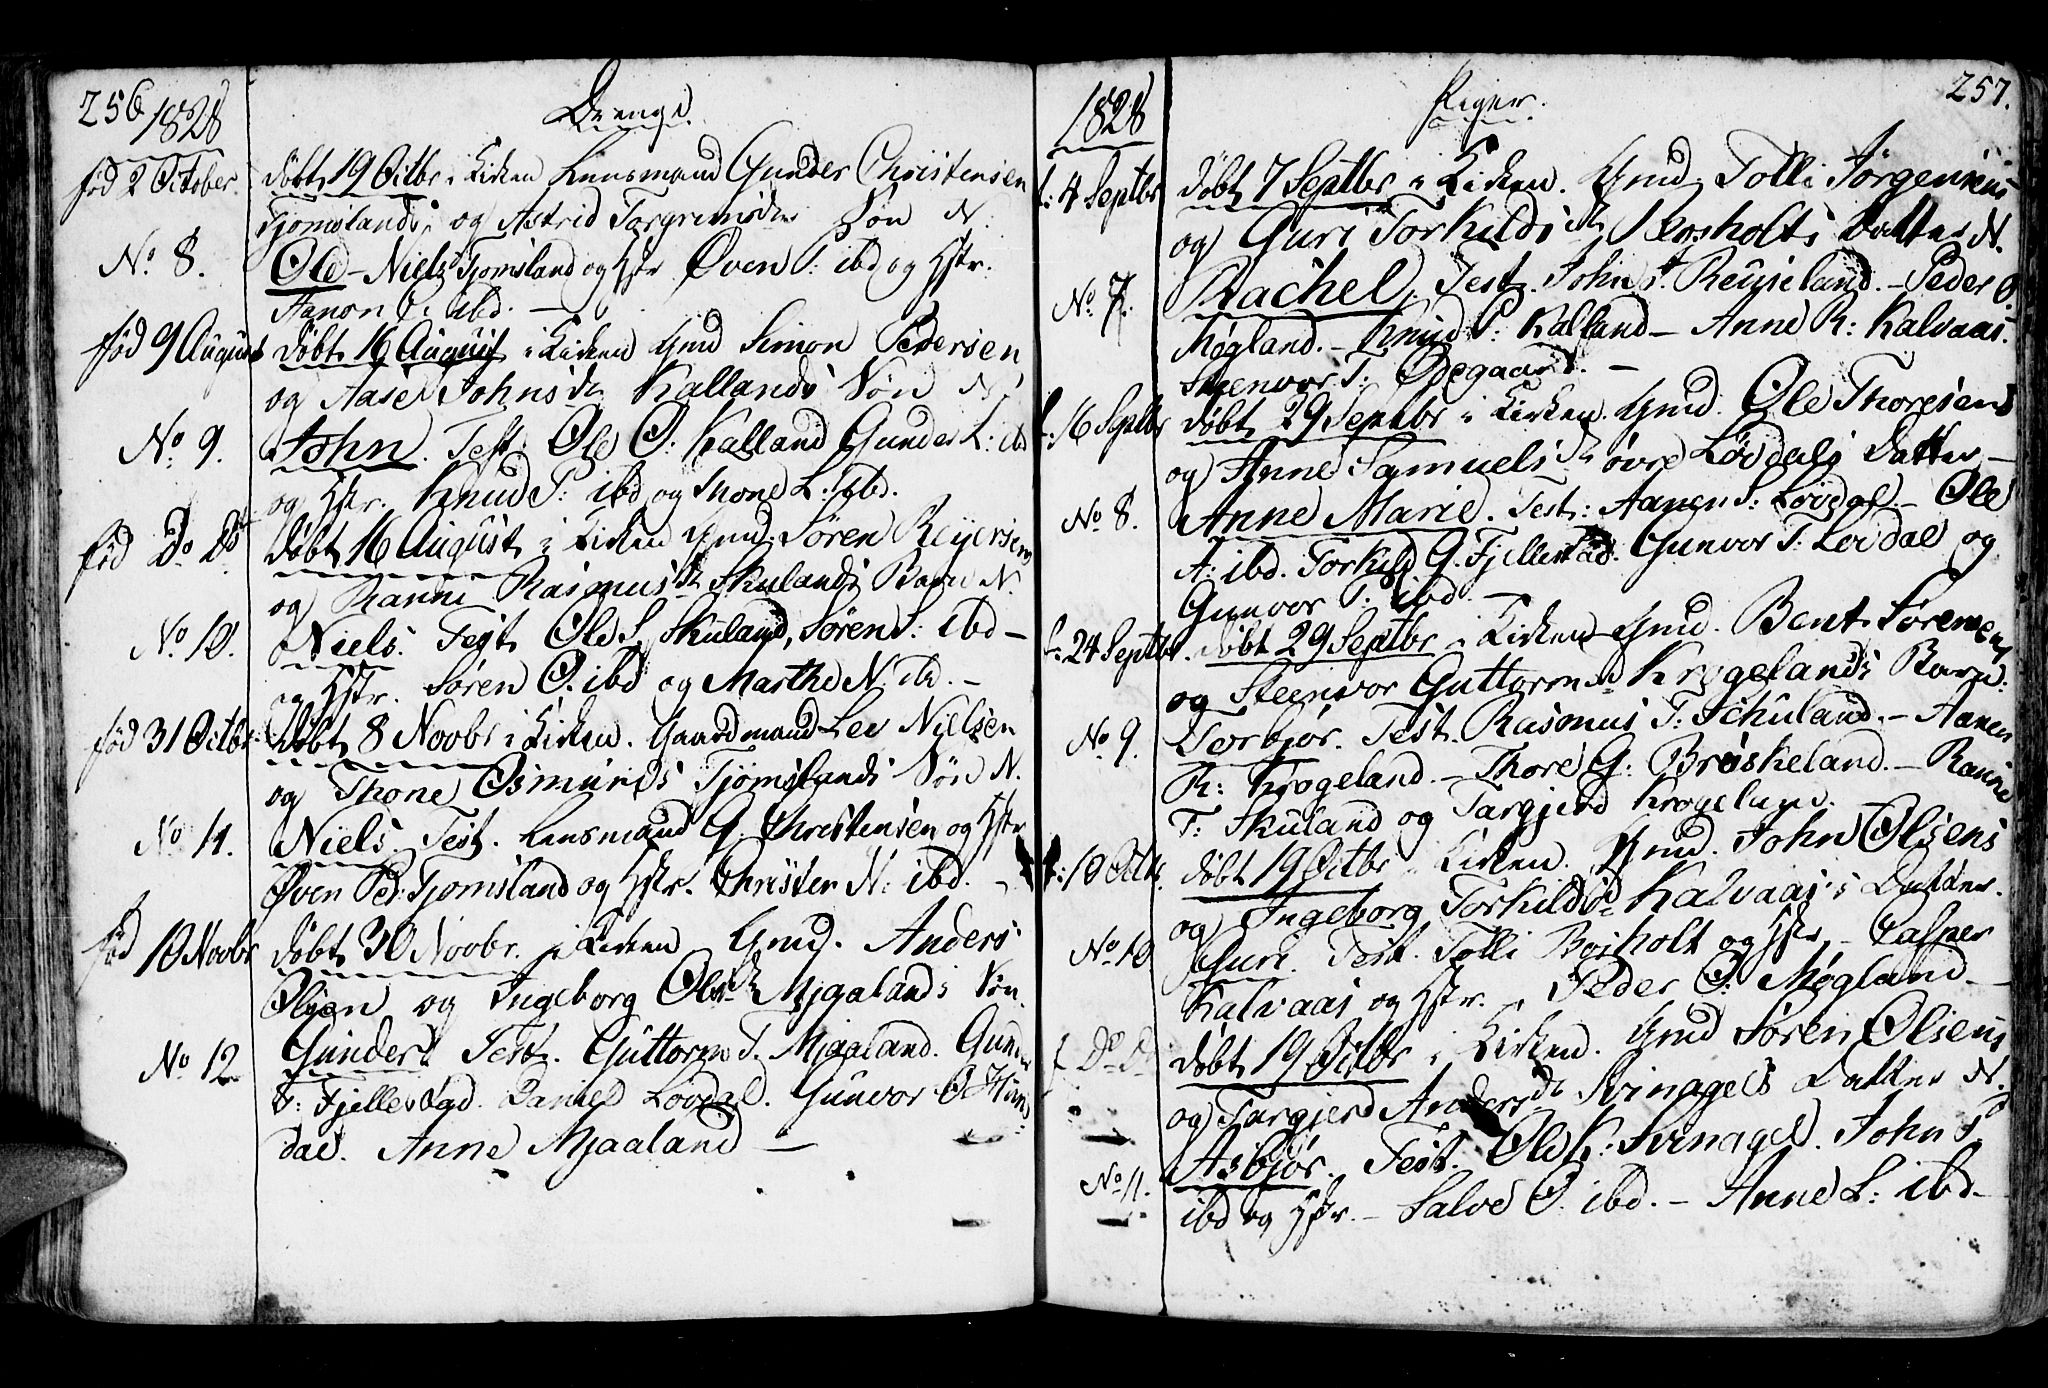 256
1828
Drenge.
fød 2 October.
døbt 19 Octbr i Kirken Lensmand Gunder Christensen
Tjomslands og Astrid Torgrimsdr Søn N.
No 8.
Ole Niels Tjomsland og Hstr Øven P: ibd og Hstr.
Hanon C. ibd. —
fød 9 August
døbt 16 August i Kirken Gmd Simon Pedersen
og Aase Johnsdr Kallands Søn N.
No 9.
John. Test Ole O. Kalland Gunder L: ibd
og Hstr. Knud P: ibd og Thone L: ibd.
fød Do Do
døbt 16 August i Kirken Gmd. Søren Reijersen
og Ranni Rasmusdr Skulands Barn N.
No 10.
Niels. Test Ole S. Skuland, Søren S: ibd —
og Hstr. Søren O. ibd og Marthe N. ibd. —
fød 31 Octbr.
døbt 8 Novbr i Kirken. Gaardmand Lev Nielsen
og Thone Osmunds Tjomslands Søn N.
No 11.
Niels. Test. Lensmand G. Christensen og Hstr
Øven Ped: Tjomsland og Hstr. Christen N: ibd. —
fød 10 Novbr
døbt 30 Novbr. i Kirken Gmd. Anders
Olsen og Ingeborg Olsdr Mjaalands Søn.
No 12
Gunder. Test. Guttorm T. Mjaaland. Gunder
T: Fjellestad. Daniel Løvdal. Gunvor O Hun=
dal. Anne Mjaaland —
1828
Piger.
257.
f: 4 Septbr
døbt 7 Septbr i Kirken. Gmd. Tolli Jørgensens
og Guri Torkildsdr Rosholts Datter N.
No 7.
Rachel. Test. John T. Reuseland. — Peder O.
Møgland. — Knud P: Kalland — Anne R: Kalvaas.
Steenvor T: Ødegaard. —
f: 16 Septbr
døbt 29 Septbr i Kirken. Gmd. Ole Thoresens
og Anne Samuelsdr øvre Løvdals Datter —
No 8.
Anne Marie. Test: Aanen S: Løvdal — Ole
A: ibd. Torkild G. Fjellestad. Gunvor T: Løvdal og
Gunvor P. ibd —
f: 24 Septbr.
døbt 29 Septbr i Kirken Gmd. Bent Sørensens
og Steenvor Guttormsd Krogelands Barn:
No 9.
Torbjør. Test. Rasmus T: Skuland. — Aanen
R: Krogeland. — Thore G: Brøskeland. — Ranni
T: Skuland og Targjerd Krogeland.
f: 10 Octbr.
døbt 19 Octbr i Kirken. Gmd. John Olsens
og Ingeborg Torkildsd Kalvaas's Datter.
No 10
Guri. Test. Tolli Rosholt og Hstr. — Casper
Kalvaas og Hstr. — Peder O: Møgland —
f Do Do
døbt 19 Octbr i Kirken. Gmd Søren Olsens
og Targjerd Andersdr Svinagels Datter N.
No 11.
Asbjør. Test. Ole K: Svinagel. John S.
ibd og Hstr. — Salve O. ibd. — Anne L: ibd —